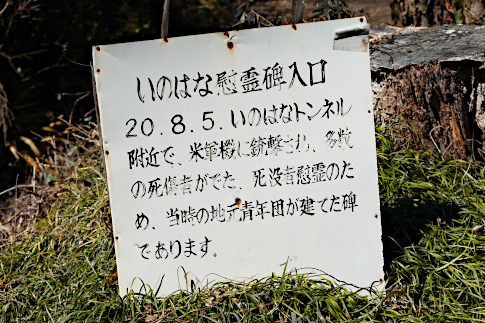 いのはな慰霊碑入口
20.8.5.いのはなトンネル
附近で、米軍機に銃撃され、多数
の死傷者がでた、死没者慰霊のた
め、当時の地元青年団が建てた碑
であります。